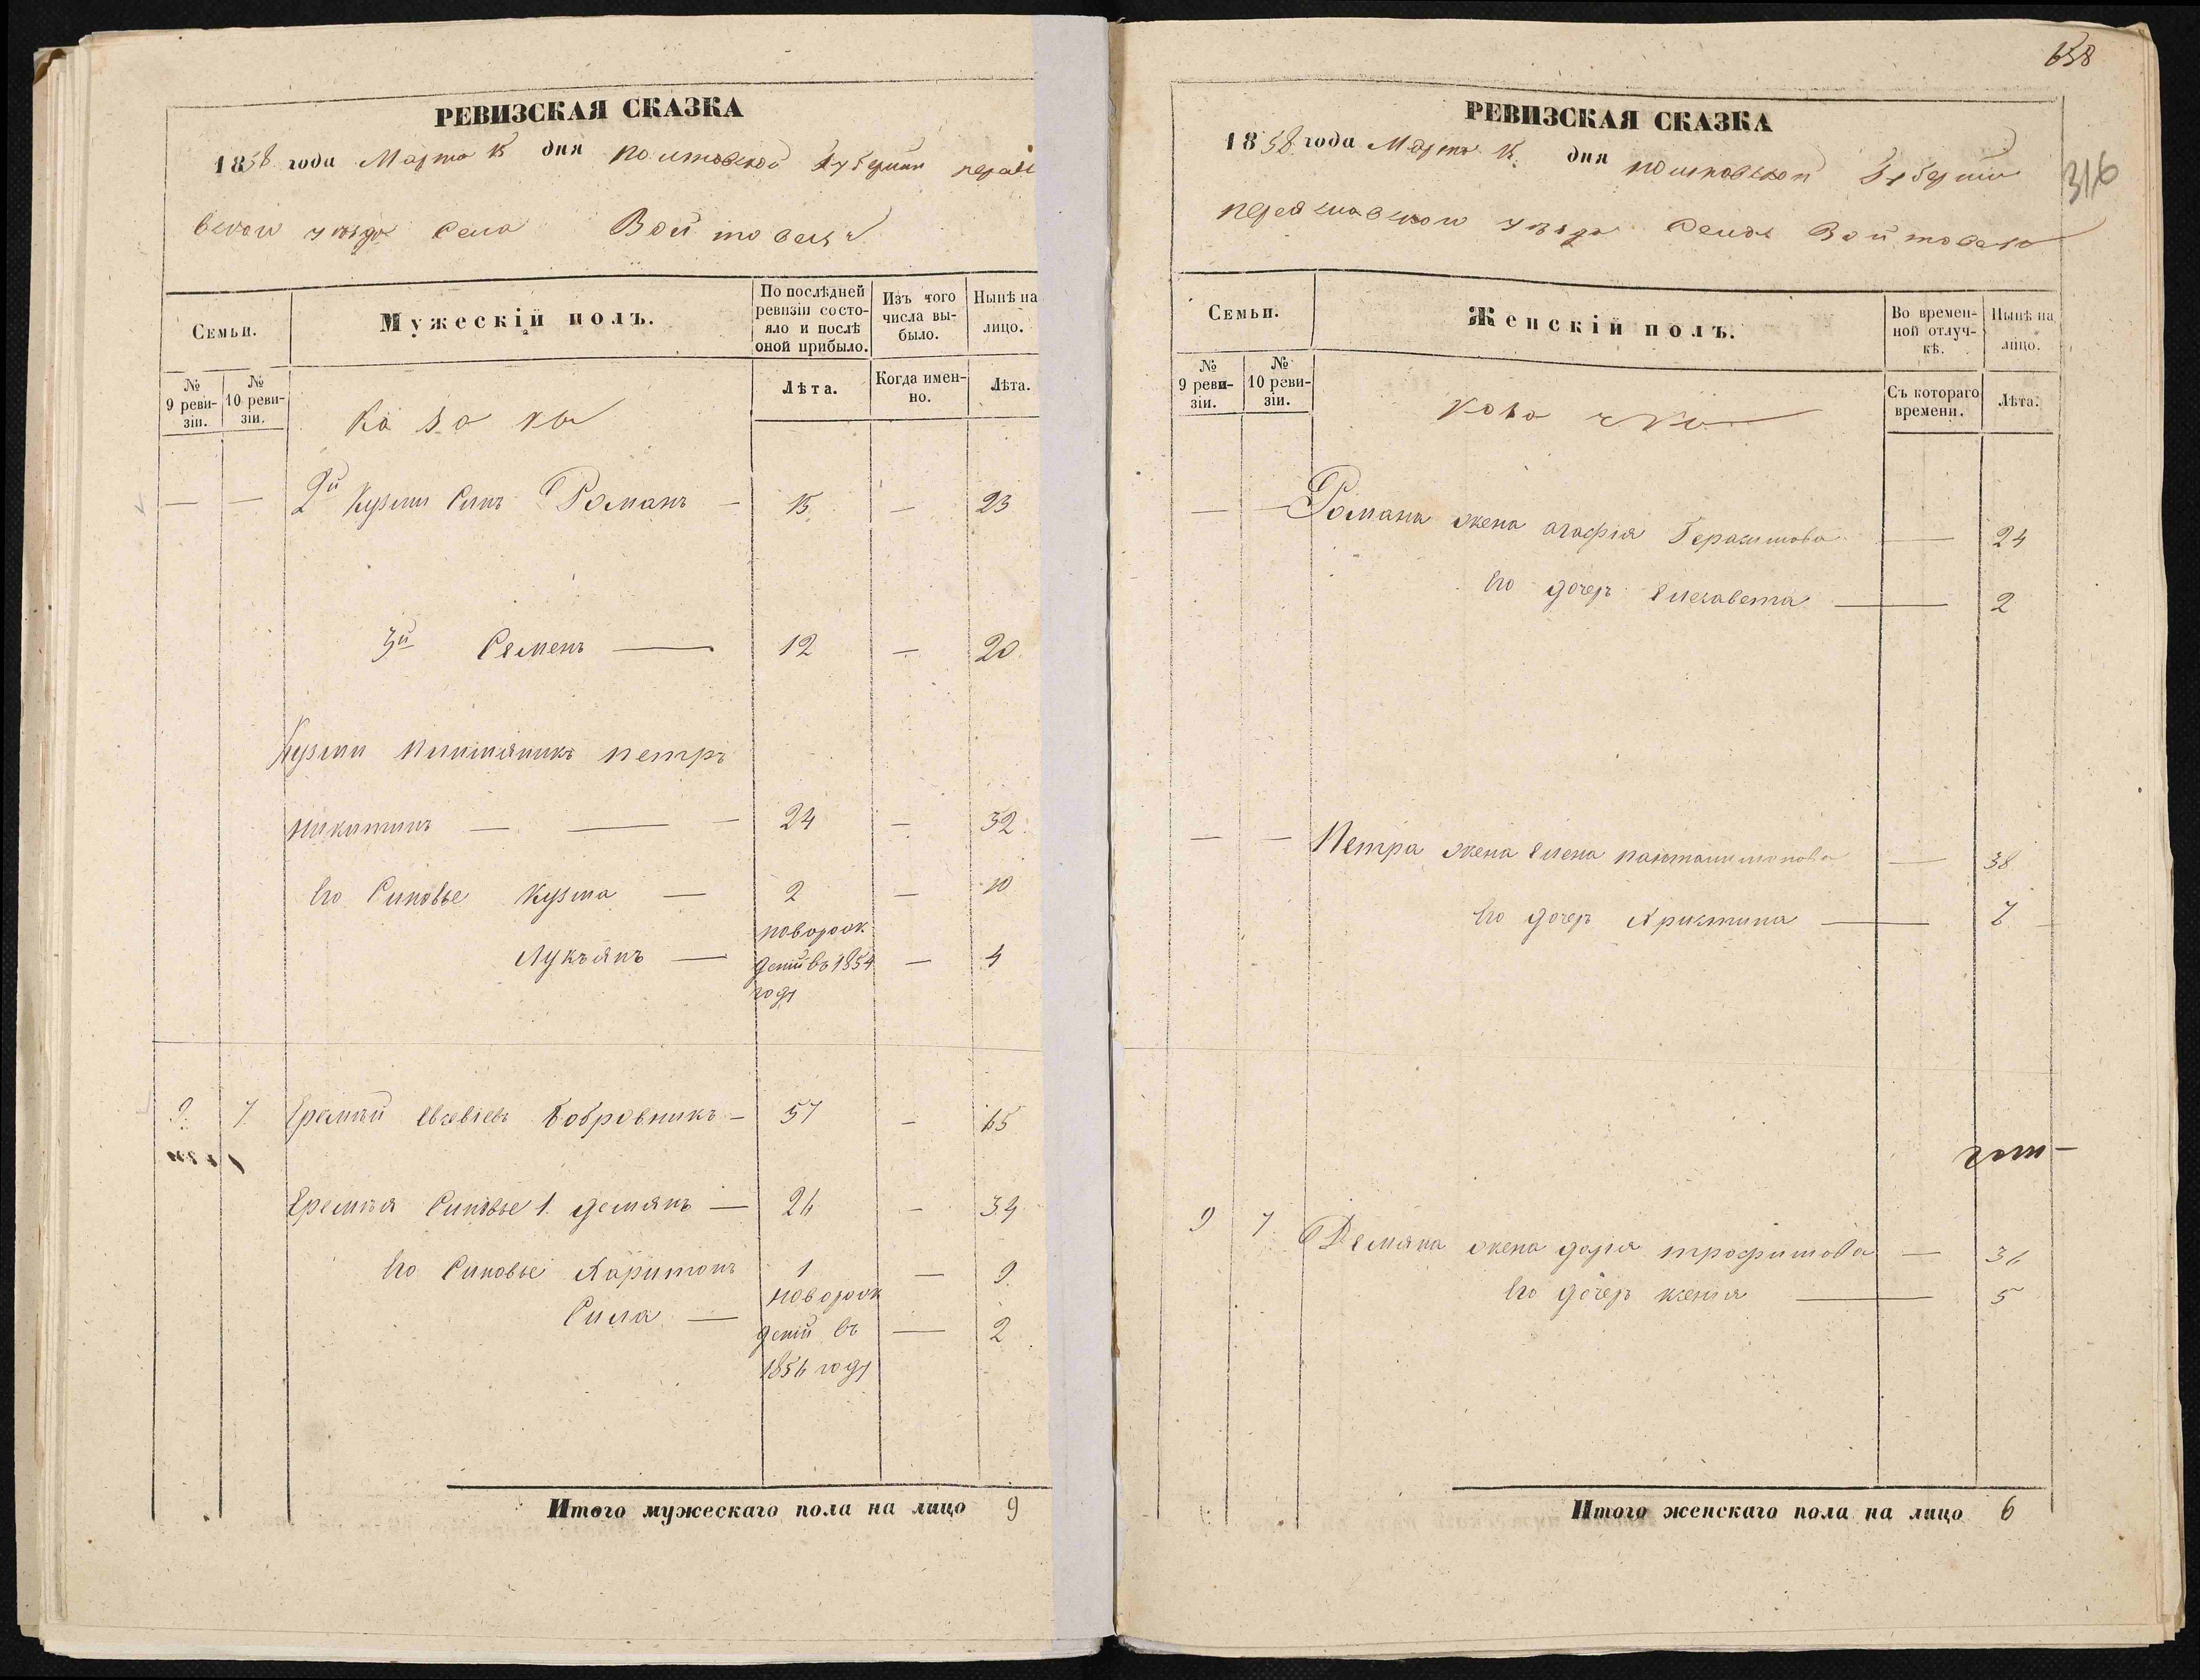 РЕВИЗСКАЯ СКАЗКА
1858 года Марта 15 дня полтовской Губернии переяс
вскои уезда Села Войтовець
Семьи.
Мужескій полъ.
По послѣдней ревизіи состояло и послѣ оной прибыло.
Изъ того числа выбыло.
Нынѣ на лицо.
№ 9 ревизіи.
№ 10 ревизіи.
Козаки
Лѣта.
Когда именно.
Лѣта.
— — 2й Кузми Синъ Романъ — 15 — 23
3й Семенъ — 12 — 20
Кузми племяникъ петръ
никитинъ — — — 24 — 32
Его Синовье Кузма — 2 — 10
новорож
Лукъянъ — деній въ 1854 — 4
году
9. 7. Еремѣй Евсевіевъ Бобровникъ — 57 — 65
Еремѣя Синовье 1. демянъ — 26 — 34
Его Синовье Харитонъ 1 — 9
новорож
Сила — деній въ — 2
1856 году
Итого мужескаго пола на лицо 9
658
316
РЕВИЗСКАЯ СКАЗКА
1858 года Марта 15 дня полтовской Губернии
переяславскои уезда Села Войтовець
Семьи.
Женскій полъ.
Во временной отлучкѣ.
Нынѣ на лицо.
№ 9 ревизіи.
№ 10 ревизіи.
козачки
Съ котораго времени.
Лѣта.
— — Романа жена агафія Герасимова — 24
Его дочеръ Елисавета — 2
— — Петра жена Елена пантилимонова — 38
Его дочеръ Христина — 7
9 7 Демяна жена дарія трофимова — 36
Его дочеръ ксенія — 5
Итого женскаго пола на лицо 6